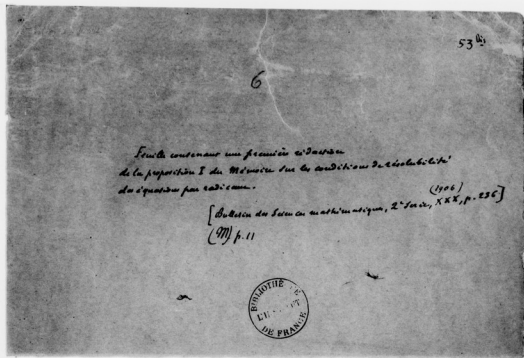 53 bis
6
Feuille contenant une première rédaction
de la proposition I du Mémoire sur les conditions de résolubilité
des équations par radicaux.
(1906)
[Bulletin des Sciences mathématiques, 2e Série, XXX, p. 236]
(M) p. 11
BIBLIOTHÈ
L'IN
DE FRANCE